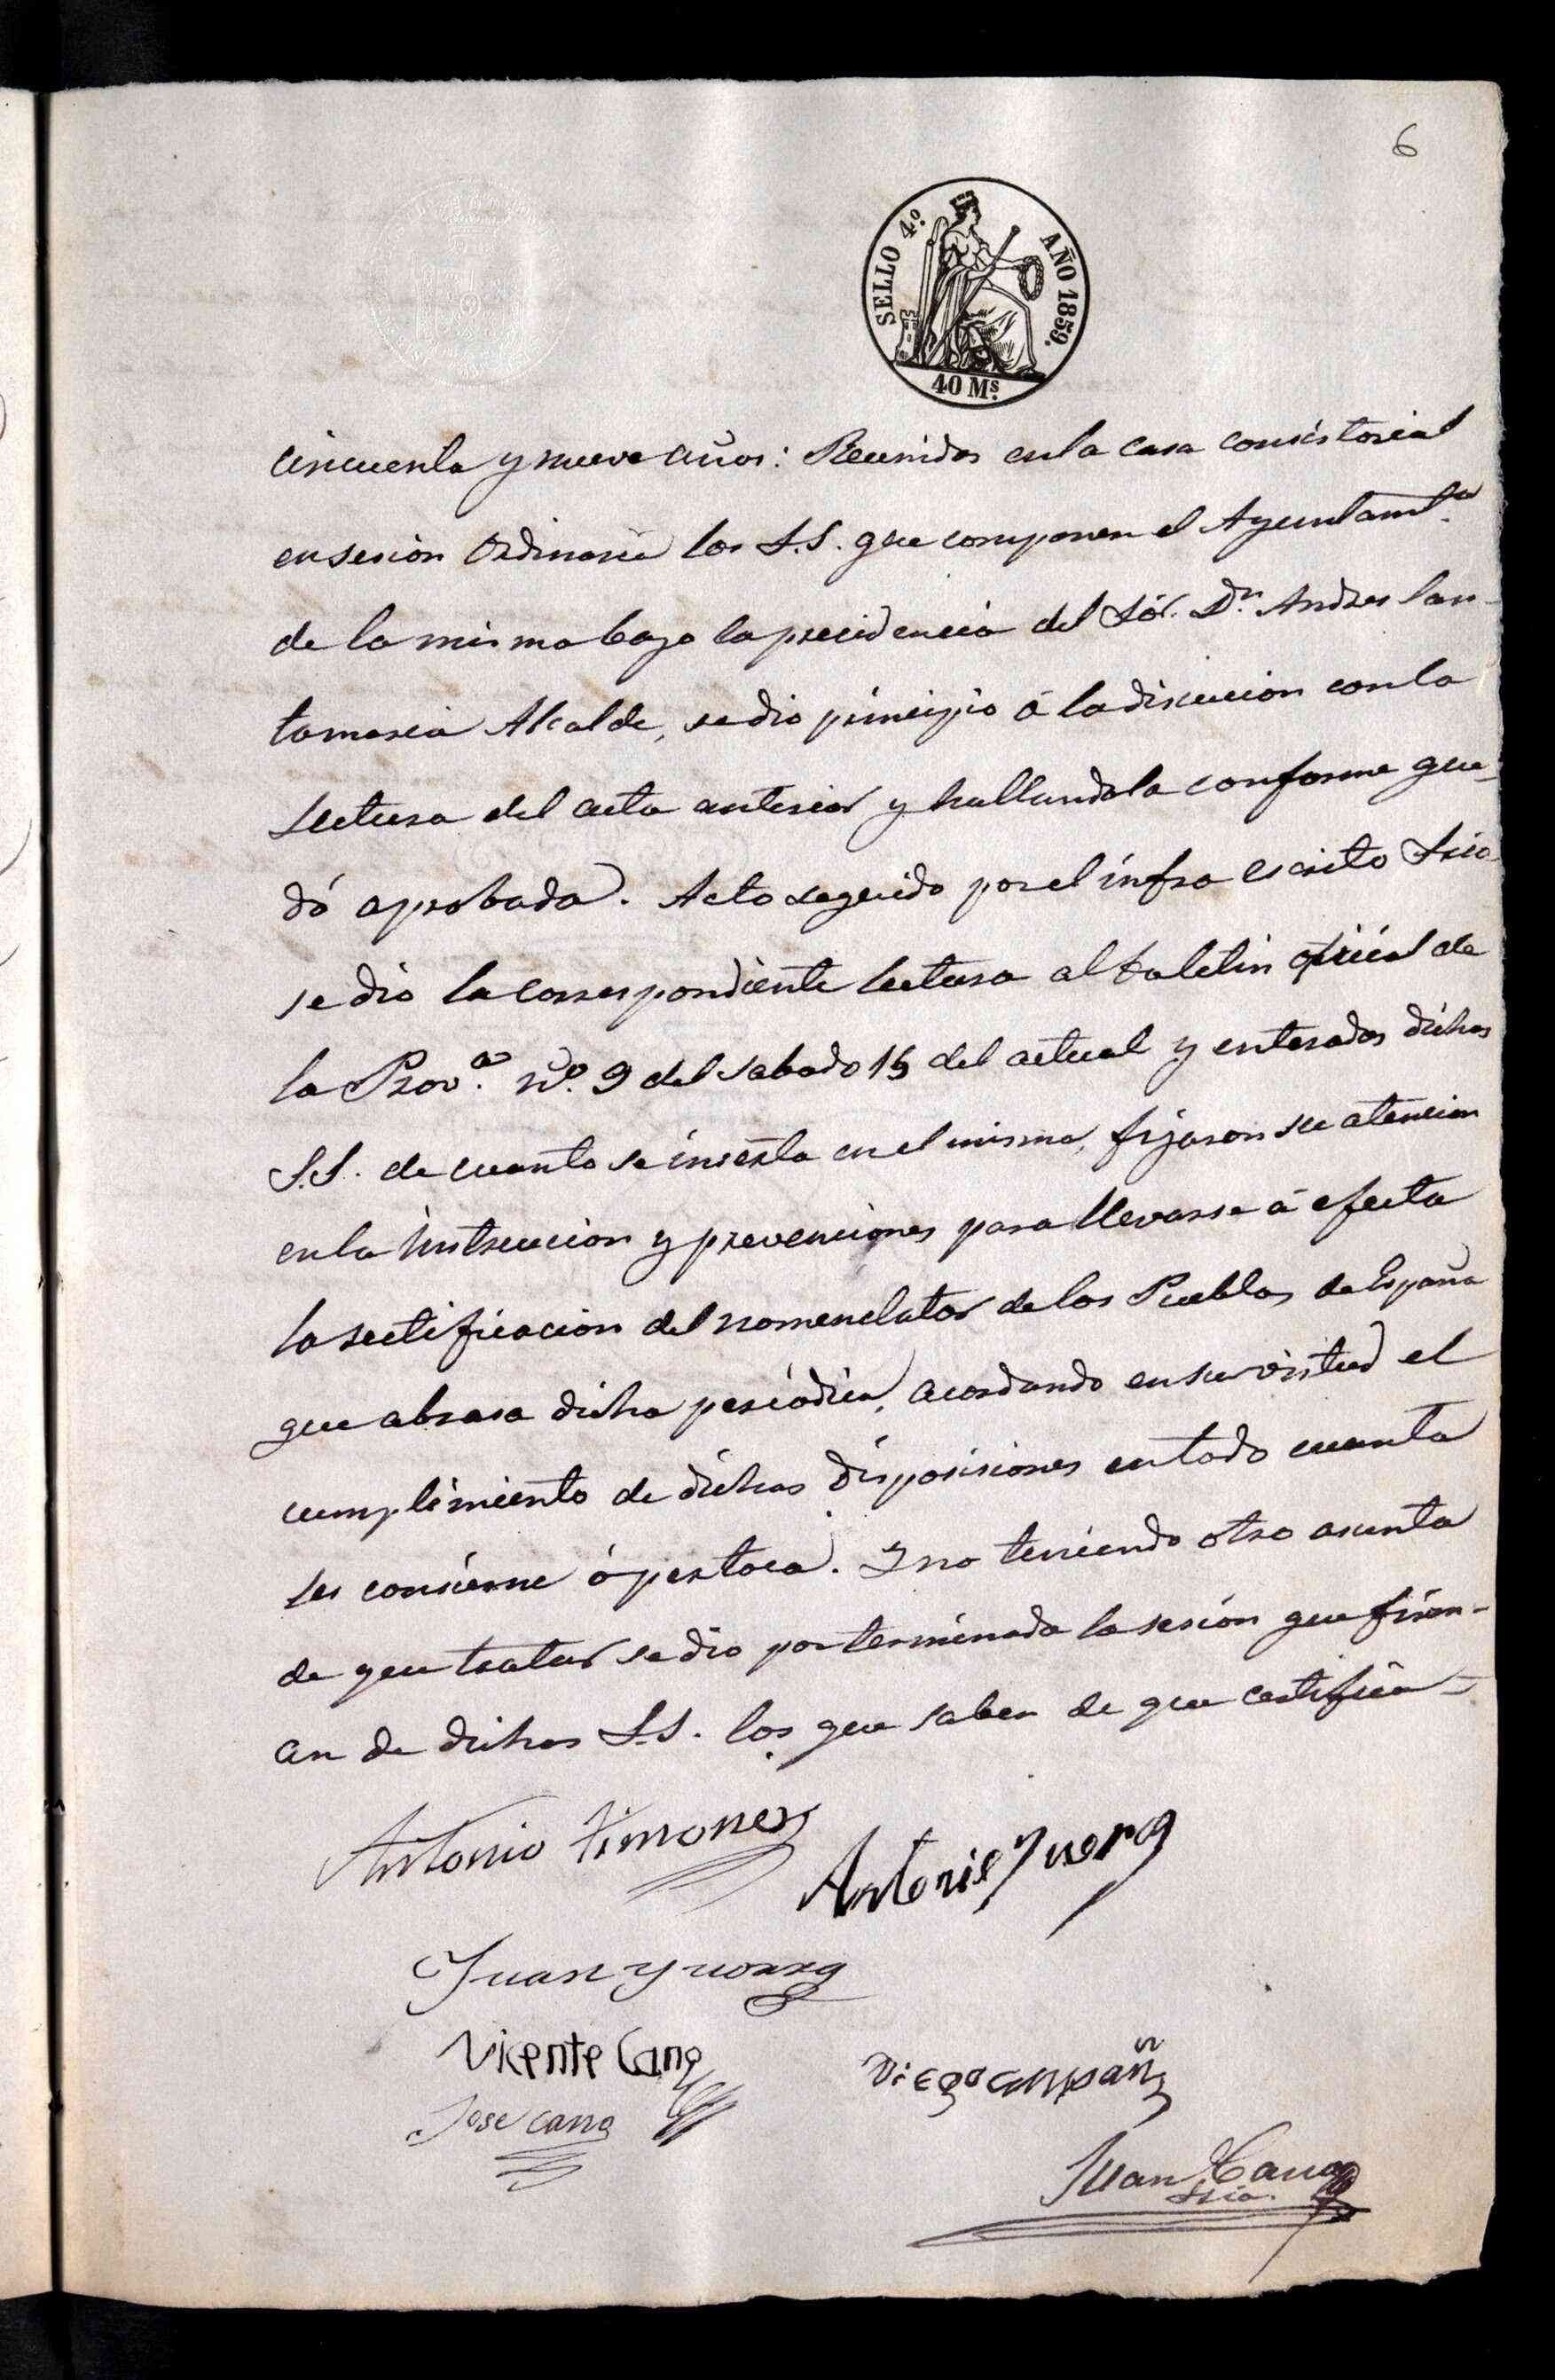 6
SELLO 4.º AÑO 1859.
40 Ms.
cincuenta y nueve años: Reunidos en la casa consistorial
en sesion Ordinaria los S.S. que componen el Ayuntamt.º
de la misma bajo la precidencia del Sór. Dn. Andres San-
tamaria Alcalde, se dio principio á la discucion con la
lectura del acta anterior y hallandola conforme que-
dó aprobada. Acto seguido por el infra escrito Srio
se dio la correspondiente lectura al boletin oficial de
la Prov.ª nº. 9 del sabado 15 del actual y enterados dichos
S.S. de cuanto se inserta en el mismo, fijaron su atencion
en la instruccion y prevenciones para llevarse á efecto
la rectificacion del nomenclator de los Pueblos de España
que abrasa dicho periodico, acordando en su virtud el
cumplimiento de dichas disposiciones en todo cuanto
les consierne ó pertoca. Y no teniendo otro asunto
de que tratar se dio por terminada la sesión que firm-
an de dichos S.S. los que saben de que certifico=
Antonio Ximenez
Antonio Yuorra
Juan Yuorra
Vicente Cano
Diego Campañ
Jose Cano
Juan Cano
Srio.